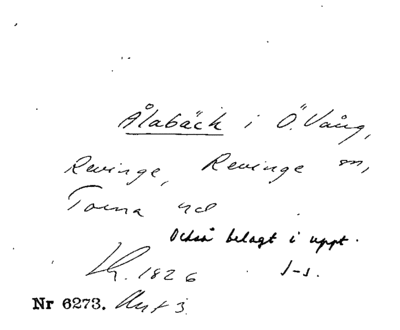 Ålabäck i Ö. Vång,
Revinge, Revinge sn,
Torna hd
Också belagt i uppt.
1826 J-s.
Nr 6273.